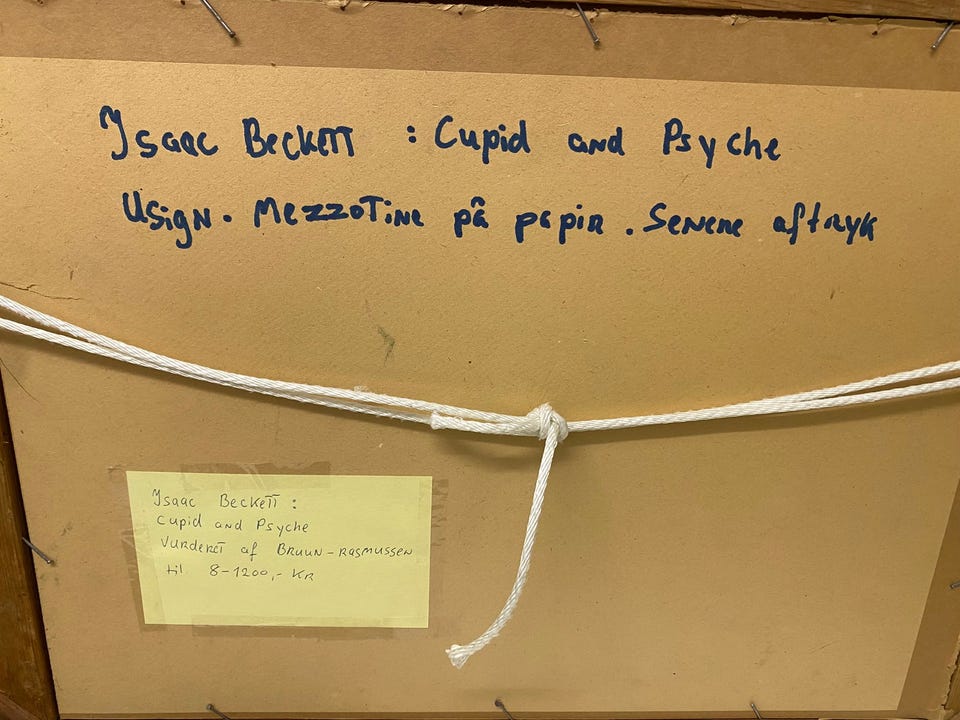 Isaac Beckett : Cupid and Psyche
Usign. Mezzotine på papir. Senere aftryk
Isaac Beckett :
Cupid and Psyche
Vurderet af Bruun-Rasmussen
til 8-1200,- Kr